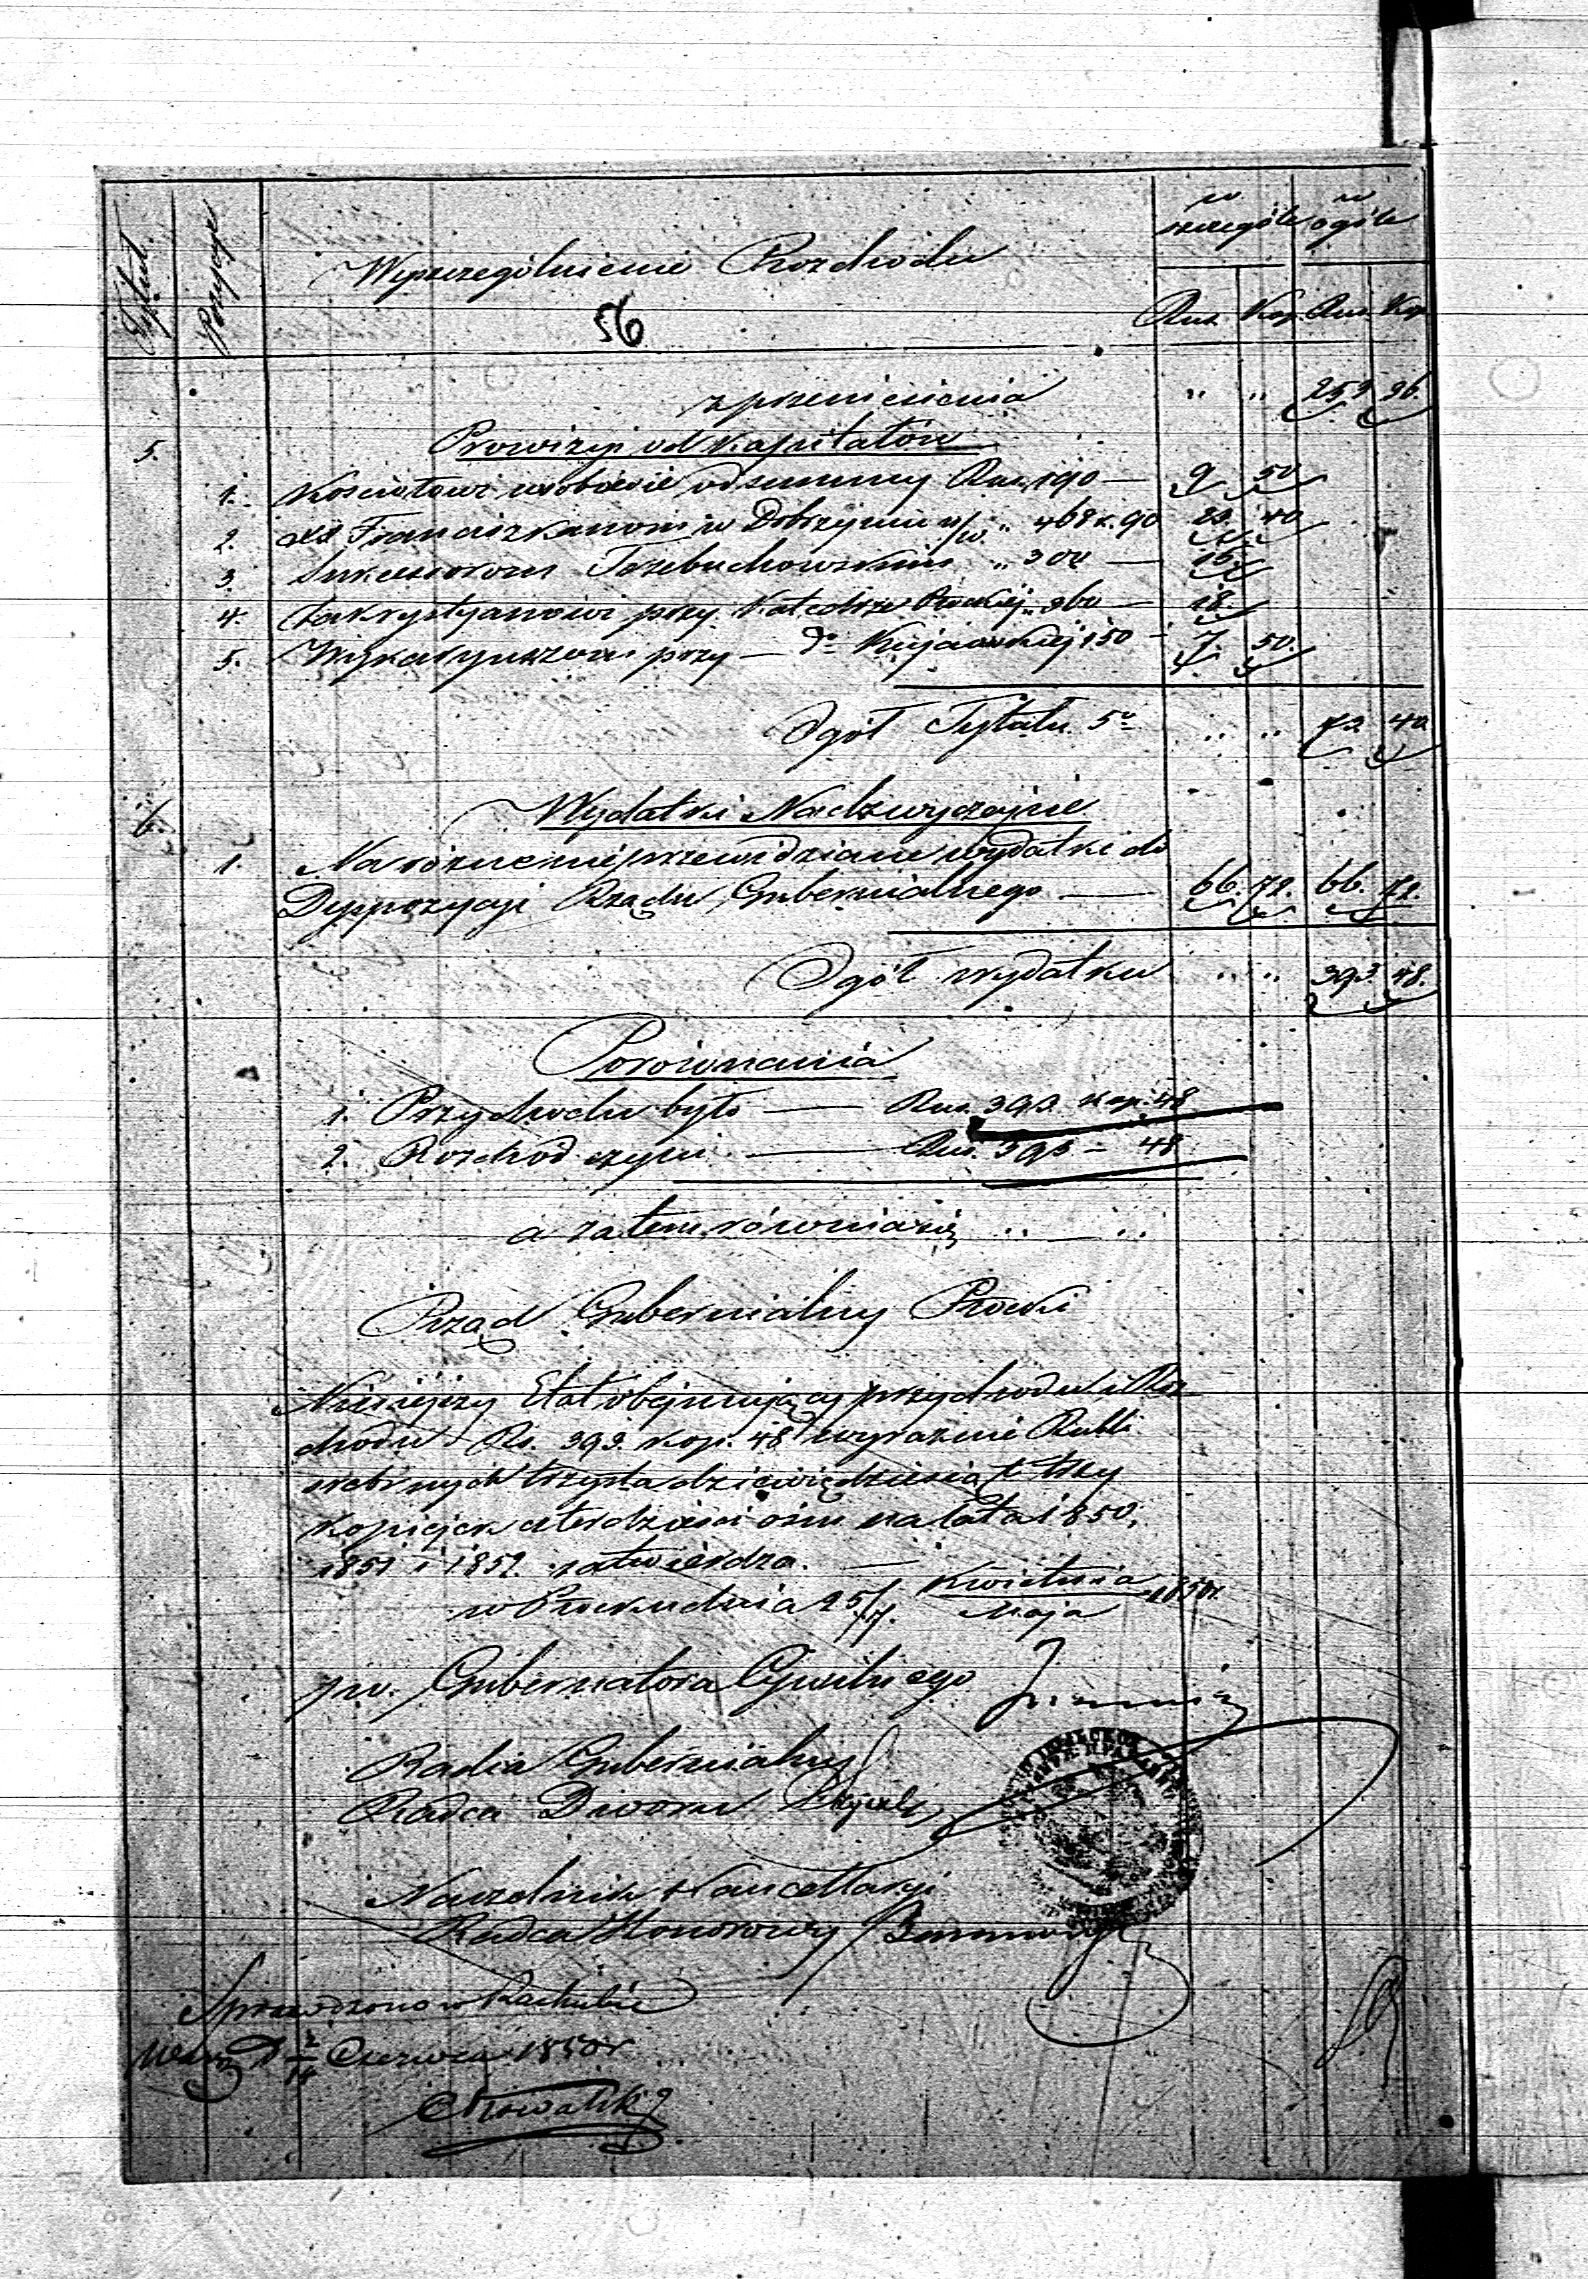 w w
szczególe ogóle
Tytuł. Pozycye Wyszczególnienie Rozchodu
Rus. Kop. Rus. Kop.
56
z przeniesienia " " 253 36.
5. Prowizyi od Kapitałów
1. Kościołowi w od summy Rus. 190 — 9 50
2. XX Franciszkanom w Dobrzyniu n/w. " 468 k. 90 23. 40
3. Sukcessorom Trzebuchowskim " 300 — 15.
4. Zakrystyanowi przy Katedrze Płockiej " 360 — 18.
5. Wikaryuszom przy — do Kujawskiej 150 — 7. 50.
Ogół Tytułu 5o " " 73 40
6. Wydatki Nadzwyczajne
1. Na różne nieprzewidziane wydatki do
Dyspozycyi Rządu Gubernialnego — 66. 72. 66. 72.
Ogół wydatku " " 393 48.
Porównania
1. Przychodu było — Rus. 393. kop. 48
2. Rozchód czyni — Rus. 393 – 48
a zatem równia się " — "
Rząd Gubernialny Płocki
Niniejszy Etat obejmujący przychodu i Roz-
chodu Rs. 393. kop. 48 wyraźnie Rubli
srebrnych trzysta dziewiędziesiąt trzy
kopiejek czterdzieści ośm na lata 1850,
1851 i 1852. zatwierdza. —
w Płocku dnia 25/7. Kwietnia/Maja 1850 r.
po. Gubernatora Cywilnego
Radca Gubernialny
Radca Dworu
Naczelnik Kancellaryi
Radca Honorowy
Sprawdzono w Rachubie
d 2/14 Czerwca 1850 r
Nowalski